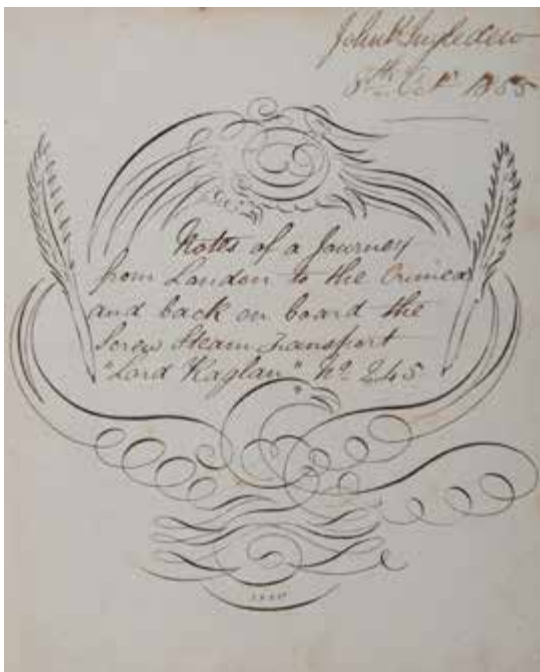 John K Ingledew
8th Octr 1855
Notes of a Journey
from London to the Crimea
and back on board the
Screw Steam Transport
"Lord Raglan" No. 245